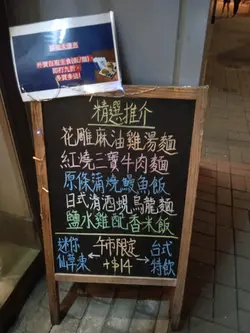 精選推介
花雕麻油雞湯麵
紅燒三寶牛肉麵
原條蒲燒鰻魚飯
日式清酒蜆烏龍麵
鹽水雞配香米飯
迷你
仙草凍
午市限定
+$14
台式
特飲